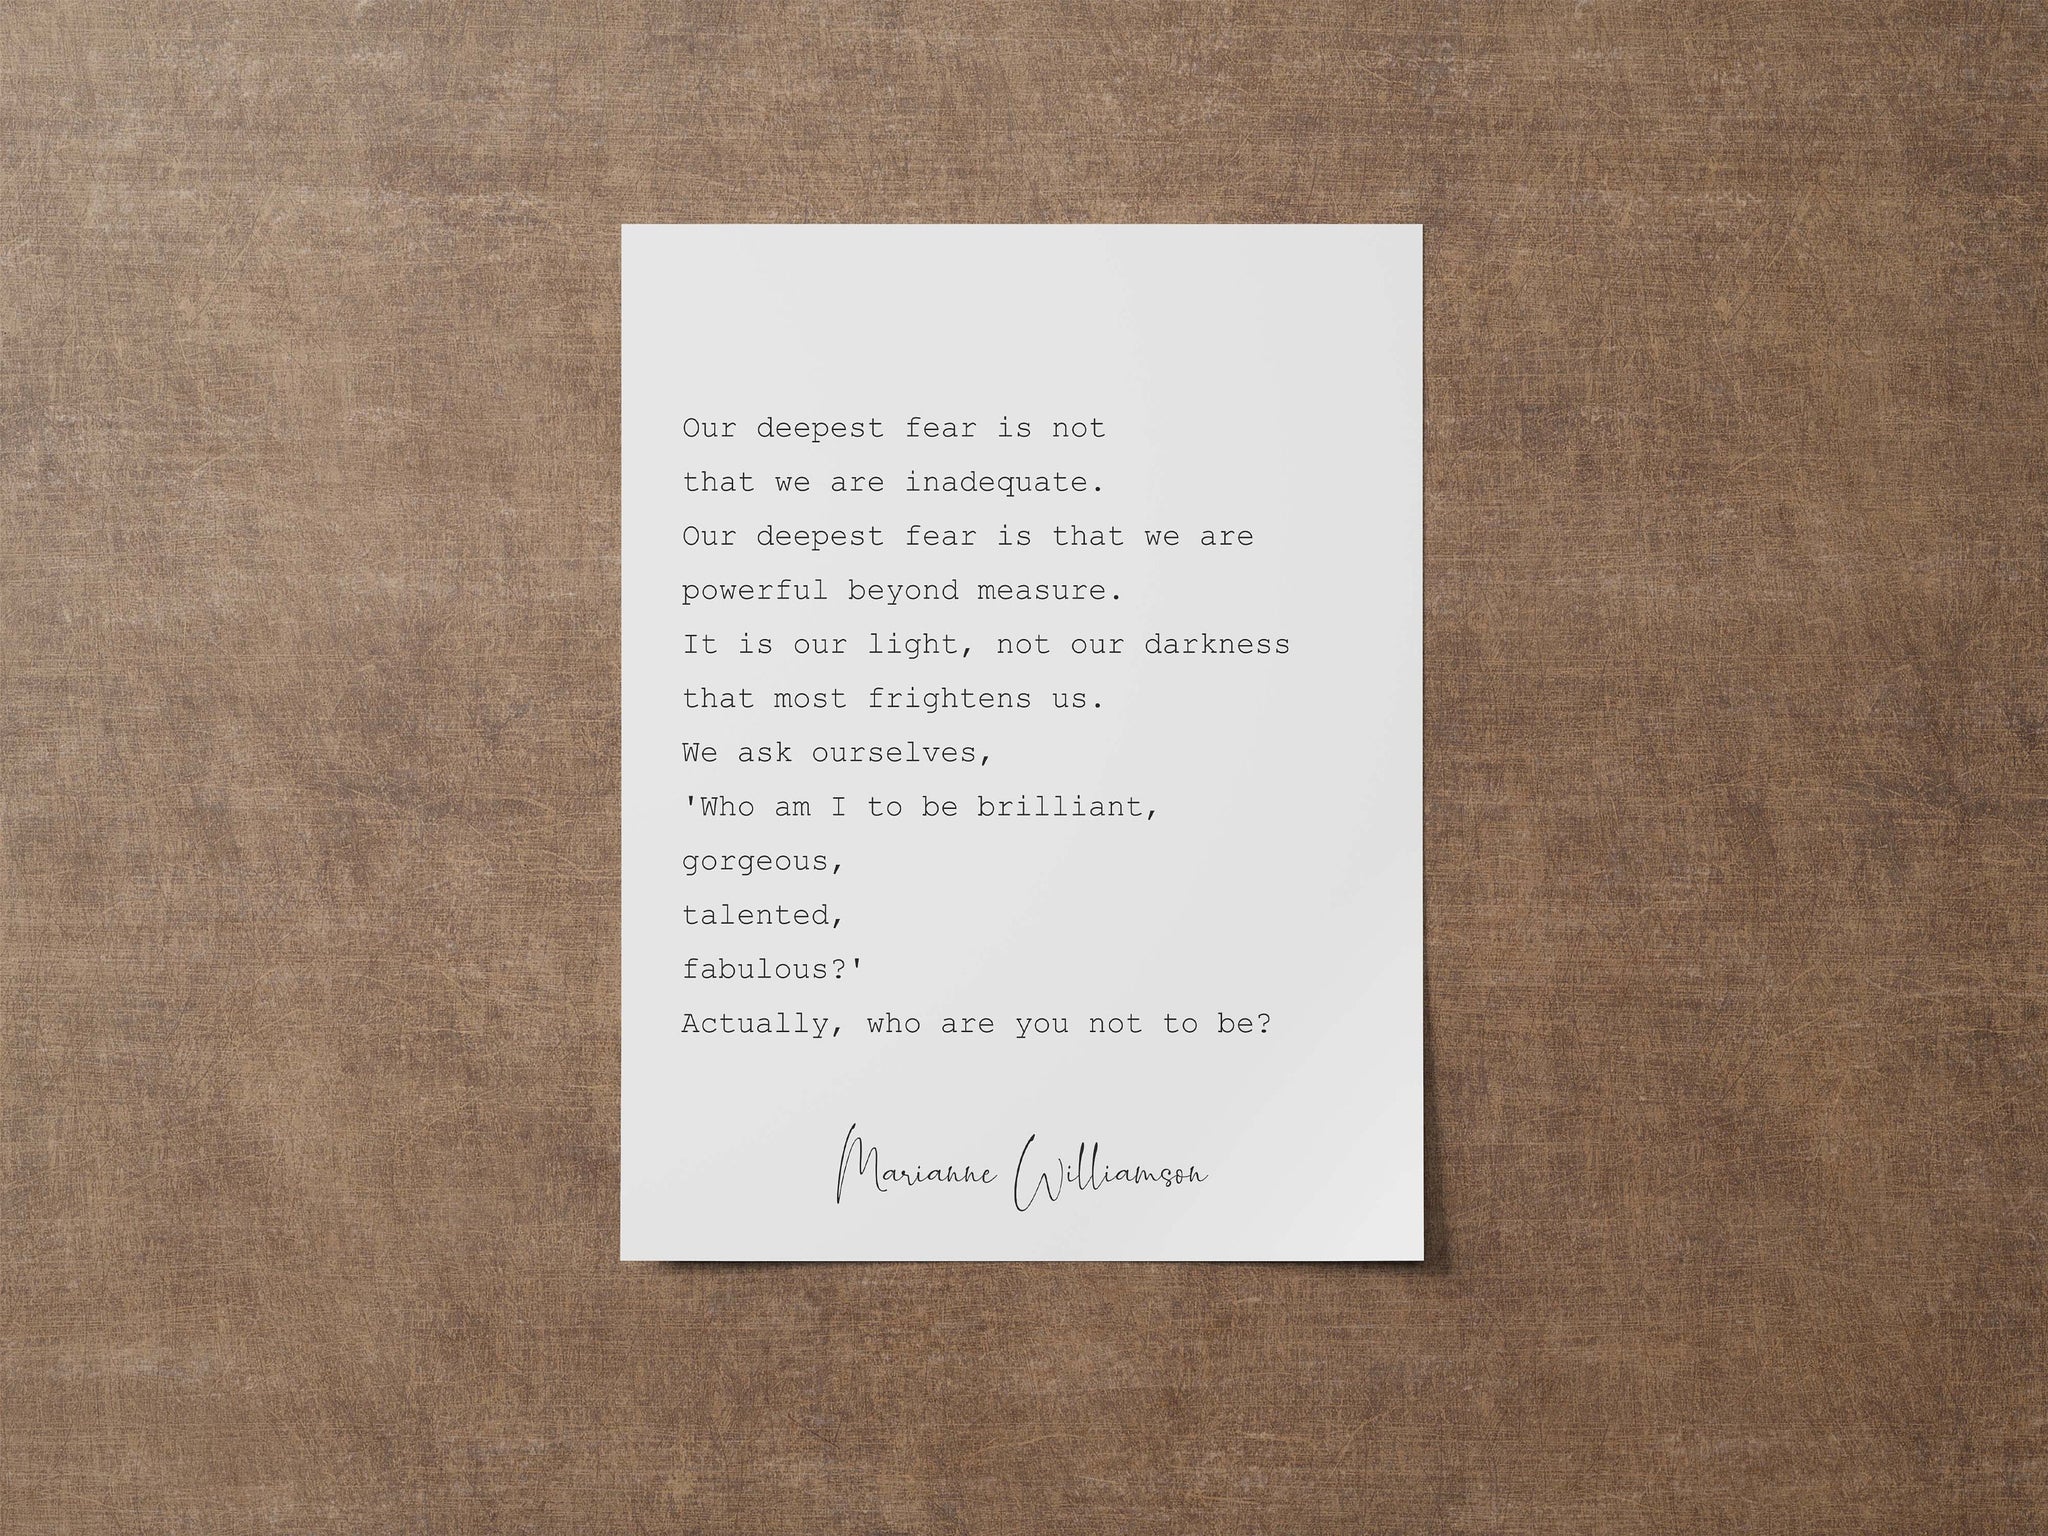 Our deepest fear is not
that we are inadequate.
Our deepest fear is that we are
powerful beyond measure.
It is our light, not our darkness
that most frightens us.
We ask ourselves,
'Who am I to be brilliant,
gorgeous,
talented,
fabulous?'
Actually, who are you not to be?
Marianne Williamson